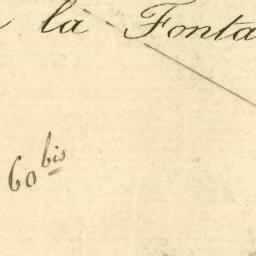 la Fonta
60 bis